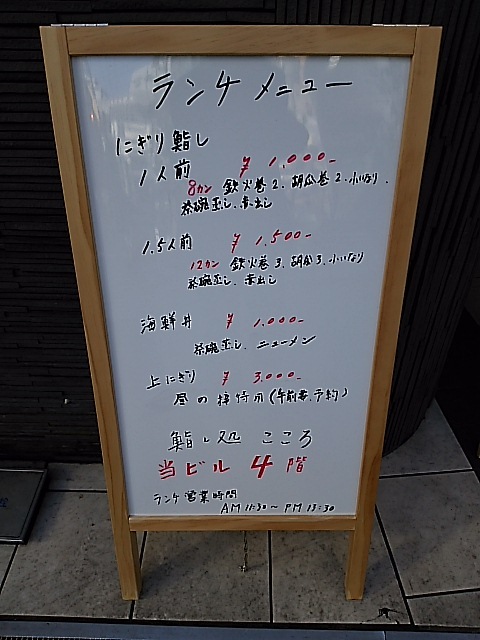 ランチメニュー
にぎり鮨し
1人前 ¥1,000-
8カン 鉄火巻2、胡瓜巻2、小いなり、
茶碗蒸し、赤出し
1.5人前 ¥1,500-
12カン 鉄火巻3、胡瓜3、小いなり
茶碗蒸し、赤出し
海鮮丼 ¥1,000-
茶碗蒸し、ニューメン
上にぎり ¥3,000-
昼の接待用(午前要、予約)
鮨し処 こころ
当ビル4階
ランチ営業時間
AM 11:30~PM 13:30